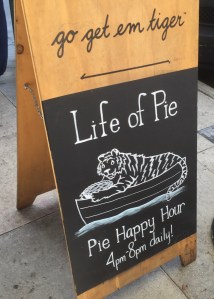 go get em tiger
Life of Pie
Pie Happy Hour
4pm-8pm daily!